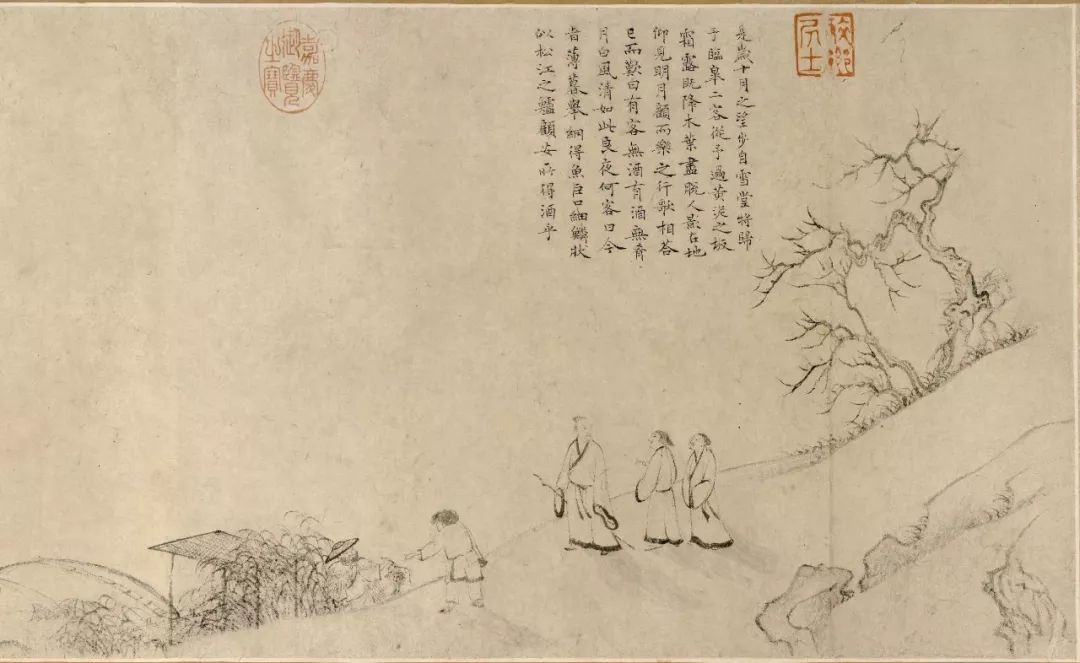 是歲十月之望步自雪堂將歸
于臨皋二客從予過黃泥之坂
霜露既降木葉盡脫人影在地
仰見明月顧而樂之行歌相荅
已而歎曰有客無酒有酒無肴
月白風清如此良夜何客曰今
者薄暮舉網得魚巨口細鱗狀
似松江之鱸顧安所得酒乎
嘉慶
御覽
之寶
居士